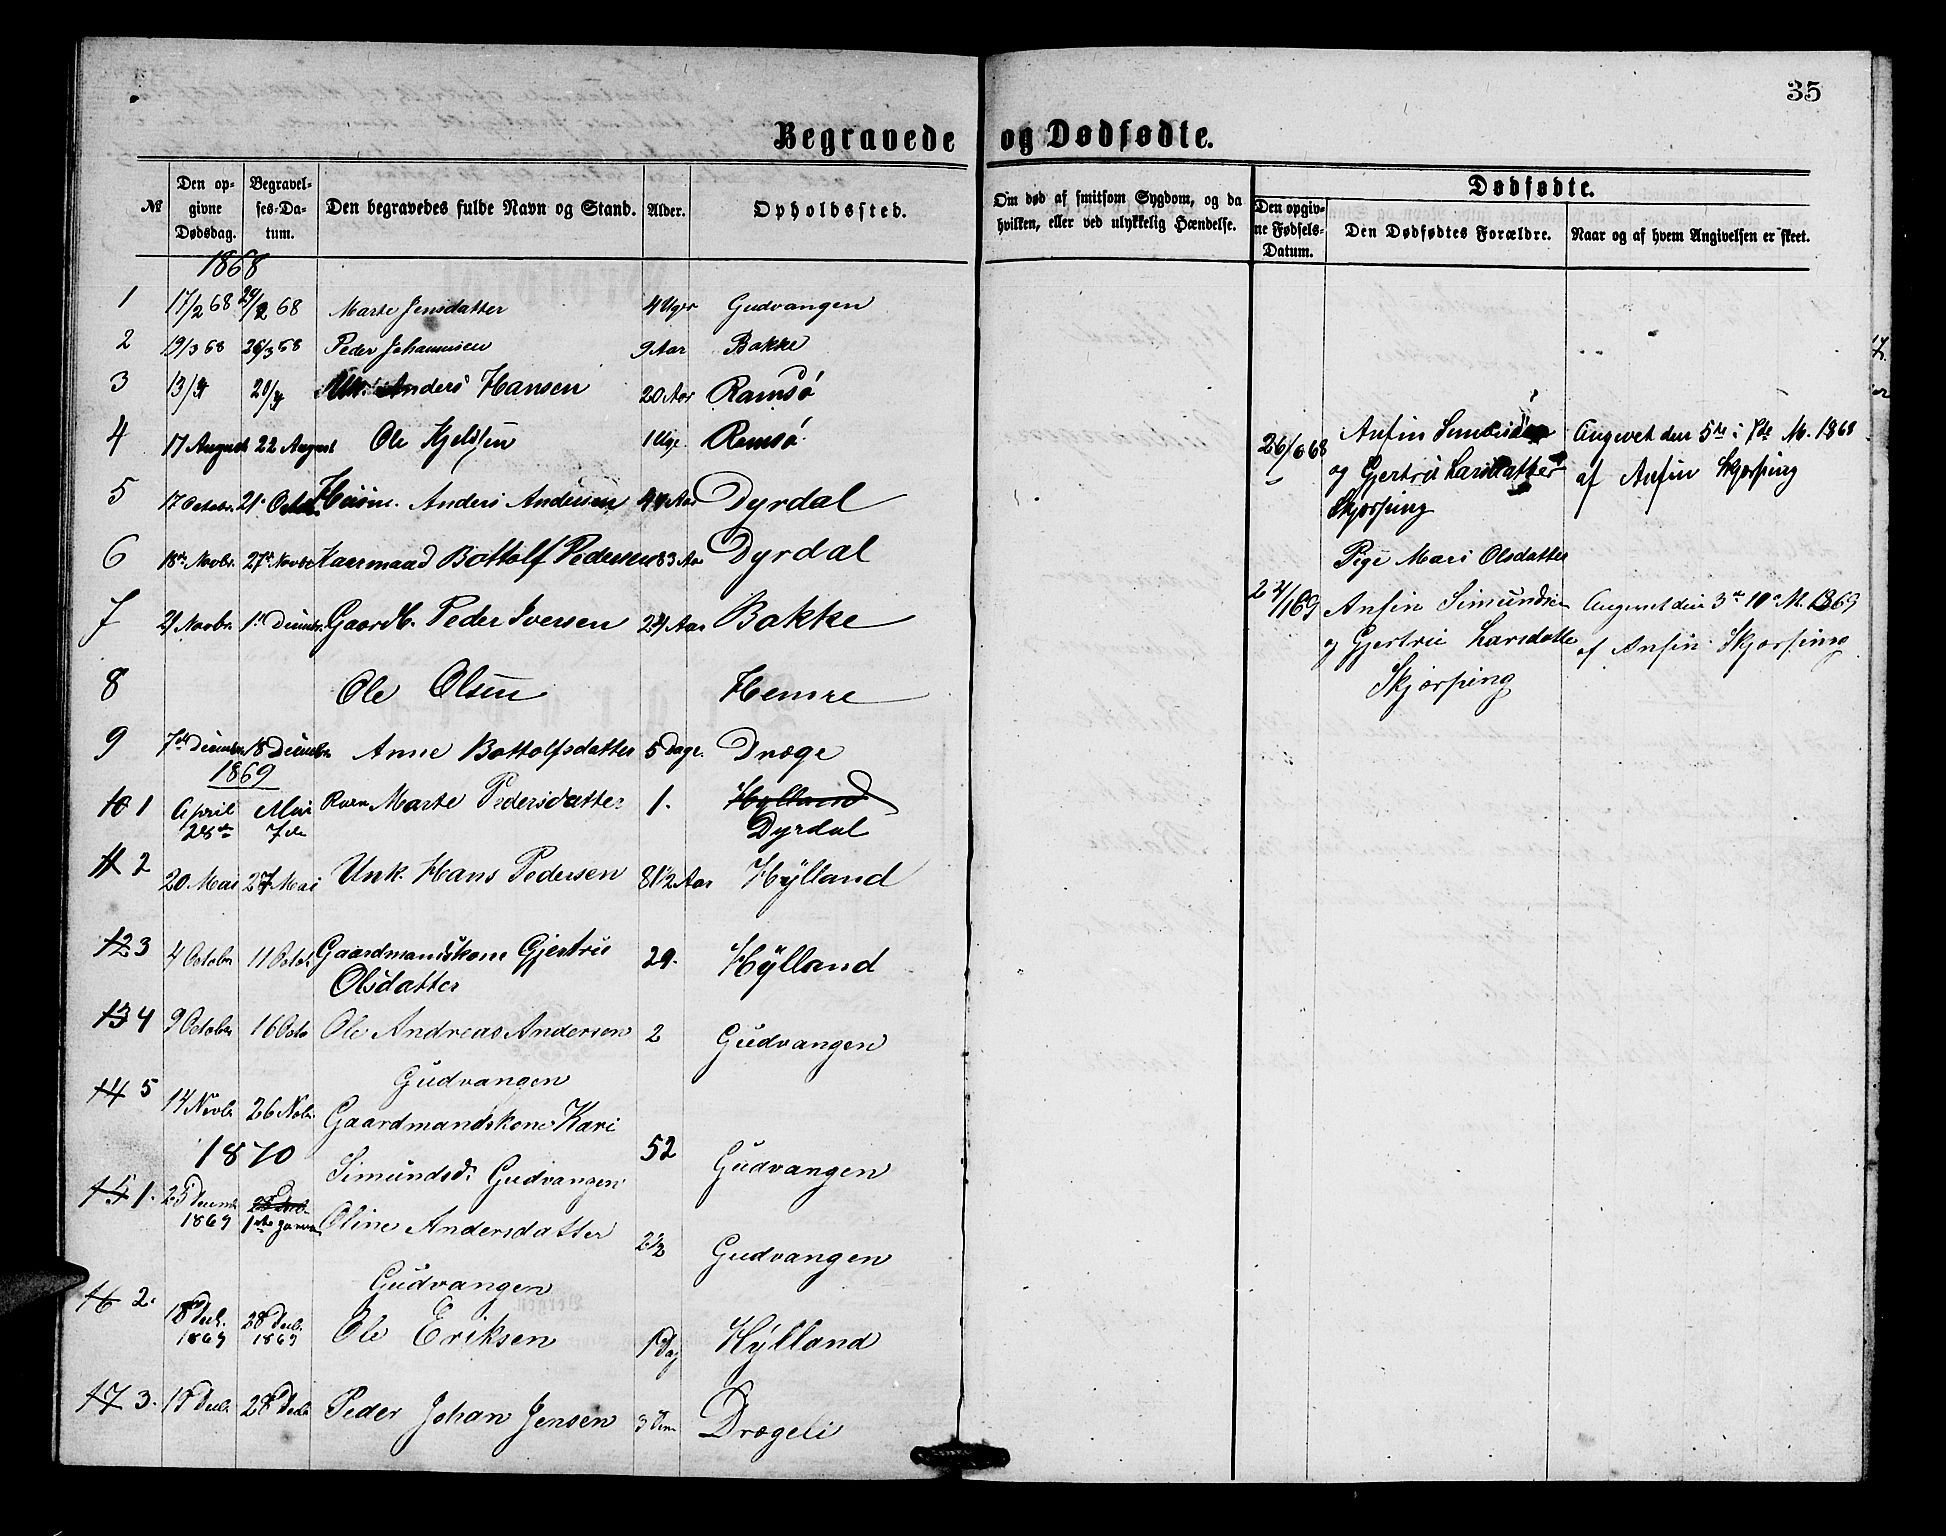 35
Begravede og Dødfødte.
№
Den opgivne Dødsdag.
Begravelses-Datum.
Den begravedes fulde Navn og Stand.
Alder.
Opholdssted.
Om død af smitsom Sygdom, og da hvilken, eller ved ulykkelig Hændelse.
Dødfødte.
Den opgivne Fødsels-Datum.
Den Dødfødtes Forældre.
Naar og af hvem Angivelsen er skeet.
1868
1 17/2 68 29/2 68 Marte Jensdatter 4 Uger Gudvangen
2 19/3 68 26/3 68 Peder Johannesen 9 Aar Bakke
3 13/4 20/4 Unk. Anders Hansen 20 Aar Ramsø
4 17 August 22 August Ole Kjeldsen 1 Uge Ramsø
5 17 Octobr. 21 Octob. Anders Andersen Aar Dyrdal
6 18de Novbr. 27de Novbr Kaarmand Bottolf Pedersen 83 Aar Dyrdal
7 21 Novbr. 1ste Decmbr. Gaardb. Peder Iversen 24 Aar Bakke
8 Ole Olsen Hemre
9 7de Decmbr. 18 Decmbr. Anne Bottolfsdatter 5 Dage. Dræge
1869
10 1 April 28de Mai 7de Barn Marte Pedersdatter 1. Hylland
Dyrdal
11 2 20 Mai 27 Mai Unk. Hans Pedersen 81/2 Aar Hylland
12 3 4 Octobr 11 Octob. Gaardmandskone Gjertrie
Olsdatter 29. Hylland
13 4 9 Octobr. 16 Octo Ole Andreas Andersen 2 Gudvangen
Gudvangen
14 5 14 Novb. 26 Nob. Gaardmandskone Kari
Simundsd. Gudvangen 52 Gudvangen
1870
15 1. 25 Decmb. 1869 1ste Januar Oline Andersdatter 2 1/2 Gudvangen
Gudvangen
16 2. 18 Decb. 1869 28 Decb. 1869 Ole Eriksen 1 Dag Hylland
17 3. 19 Decb. 28 Decb. Peder Johan Jensen 3 Drægeli
26/6 68 Anfin Simundsen
og Gjertrie Larsdatter
Skjerping
Angivet den 5te i 7de M. 1868
af Anfin Skjerping
Pige Mari Olsdatter
24/1 69 Anfin Simundsen
og Gjertrie Larsdatte
Skjerping
Angivet den 3de 10 M. 1869
af Anfin Skjerping